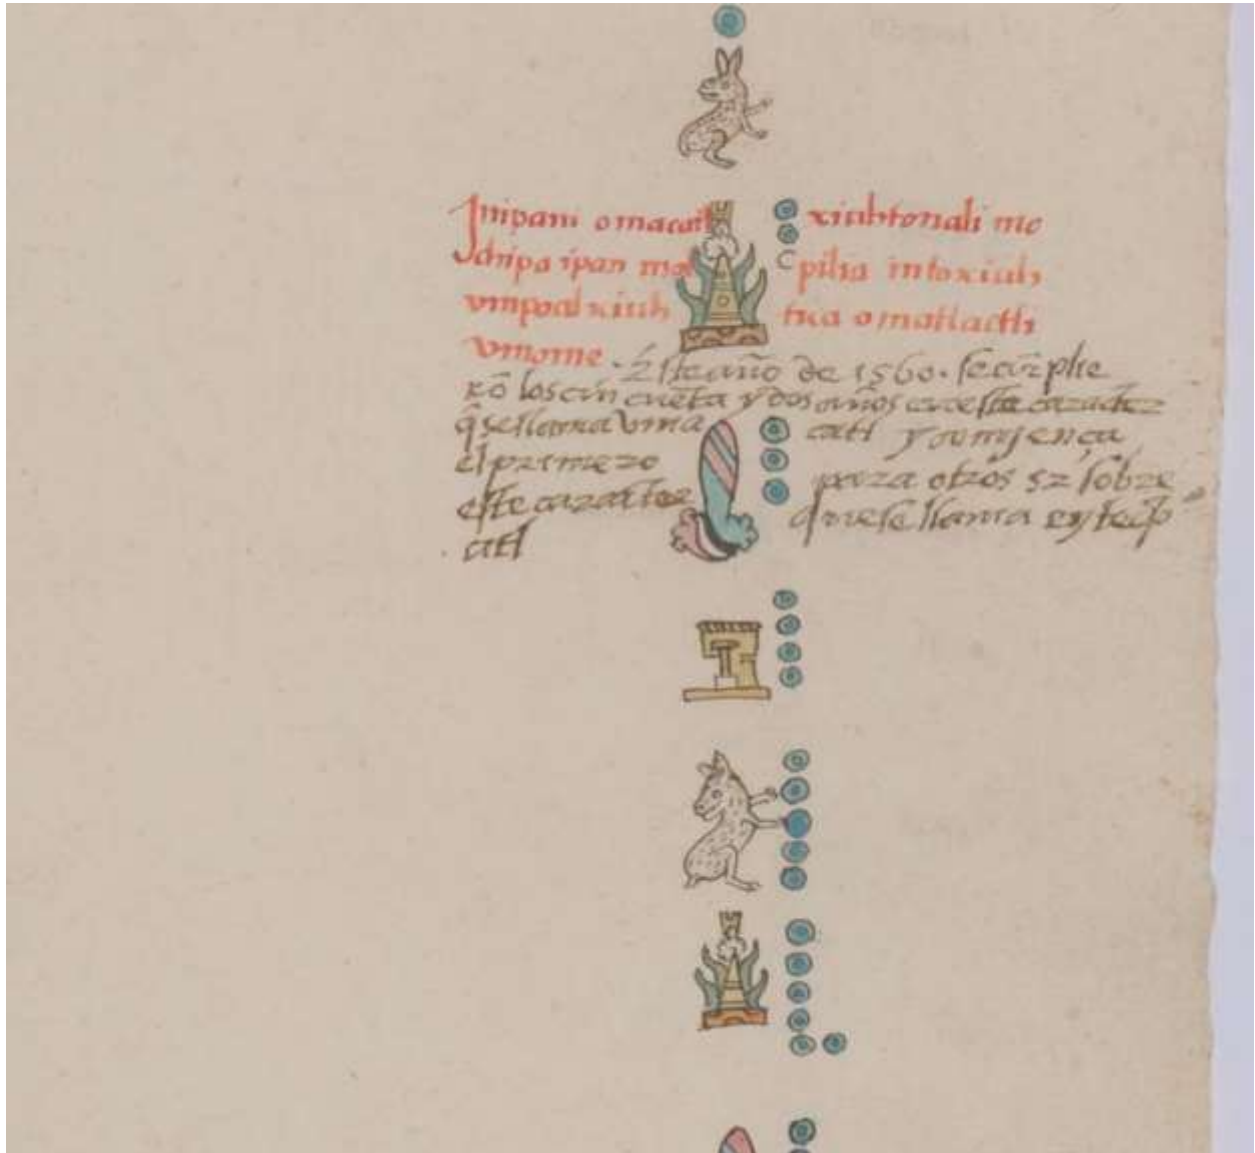 Inipani omacatl xiuhtonali mo
chipa ipan mol pilia in toxiuh
vmpoalxiuh tica omatlactli
vmome. Eſte año de 1560. ſe cũplie
rõ los cincuenta y dos años
q̃ se llama vma catl y comjença
el primero para otros 52 ſobre
eſte carater que ſe llama eytecp
atl